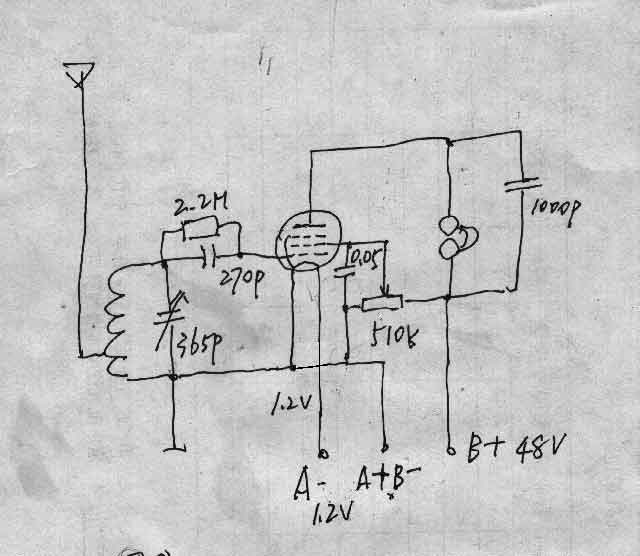 2.2M
1000P
0.05
270P
365P
510K
1.2V
B+ 48V
A- A+B-
1.2V